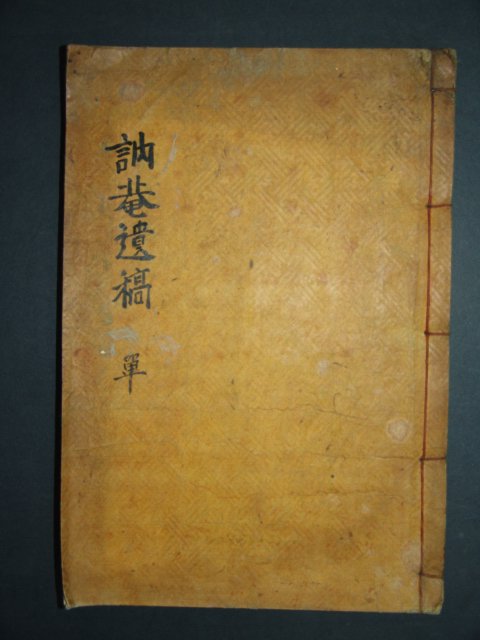 訥菴遺稿
單